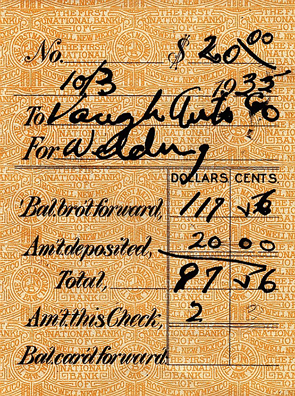 No. $ 20 00
10/3 1935
To Vaugh Auto Co
For Welding
DOLLARS CENTS
Bal. bro't forward, 117 56
Am't deposited, 20 00
Total, 97 56
Am't this Check, 2
Bal. car'd forward